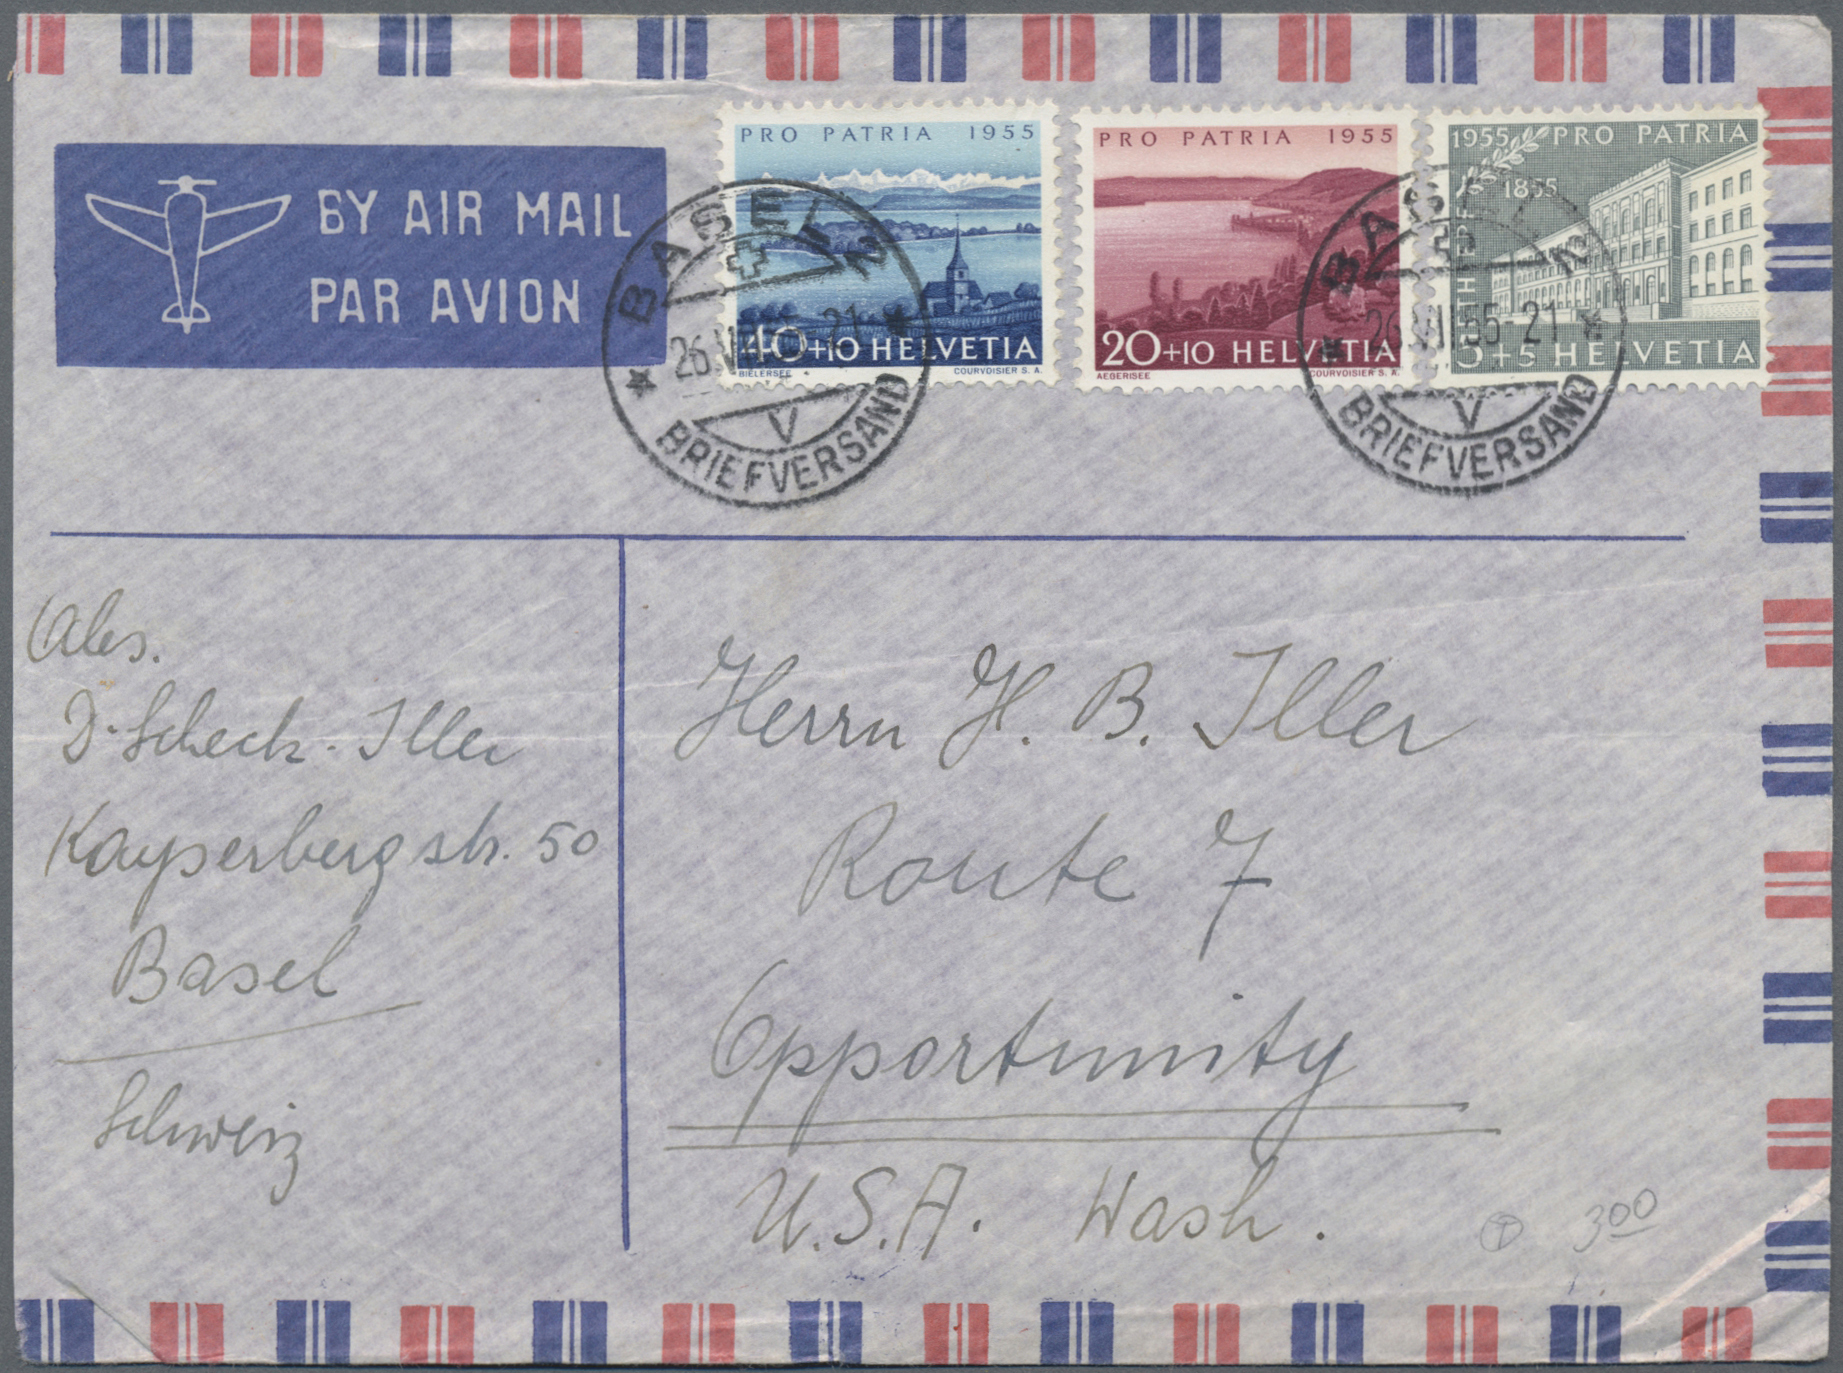 BY AIR MAIL
PAR AVION
PRO PATRIA 1955
40+10 HELVETIA
BIELERSEE COURVOISIER S.A.
PRO PATRIA 1955
20+10 HELVETIA
AEGERISEE COURVOISIER S.A.
1955 PRO PATRIA
1855
5+5 HELVETIA
BASEL 2
26.VII.55-21
V
BRIEFVERSAND
BASEL 2
26.VII.55-21
V
BRIEFVERSAND
Abs.
D. Scheck-Iller
Kayserbergstr. 50
Basel
Schweiz
Herrn H. B. Iller
Route 7
Opportunity
U.S.A. Wash.
300